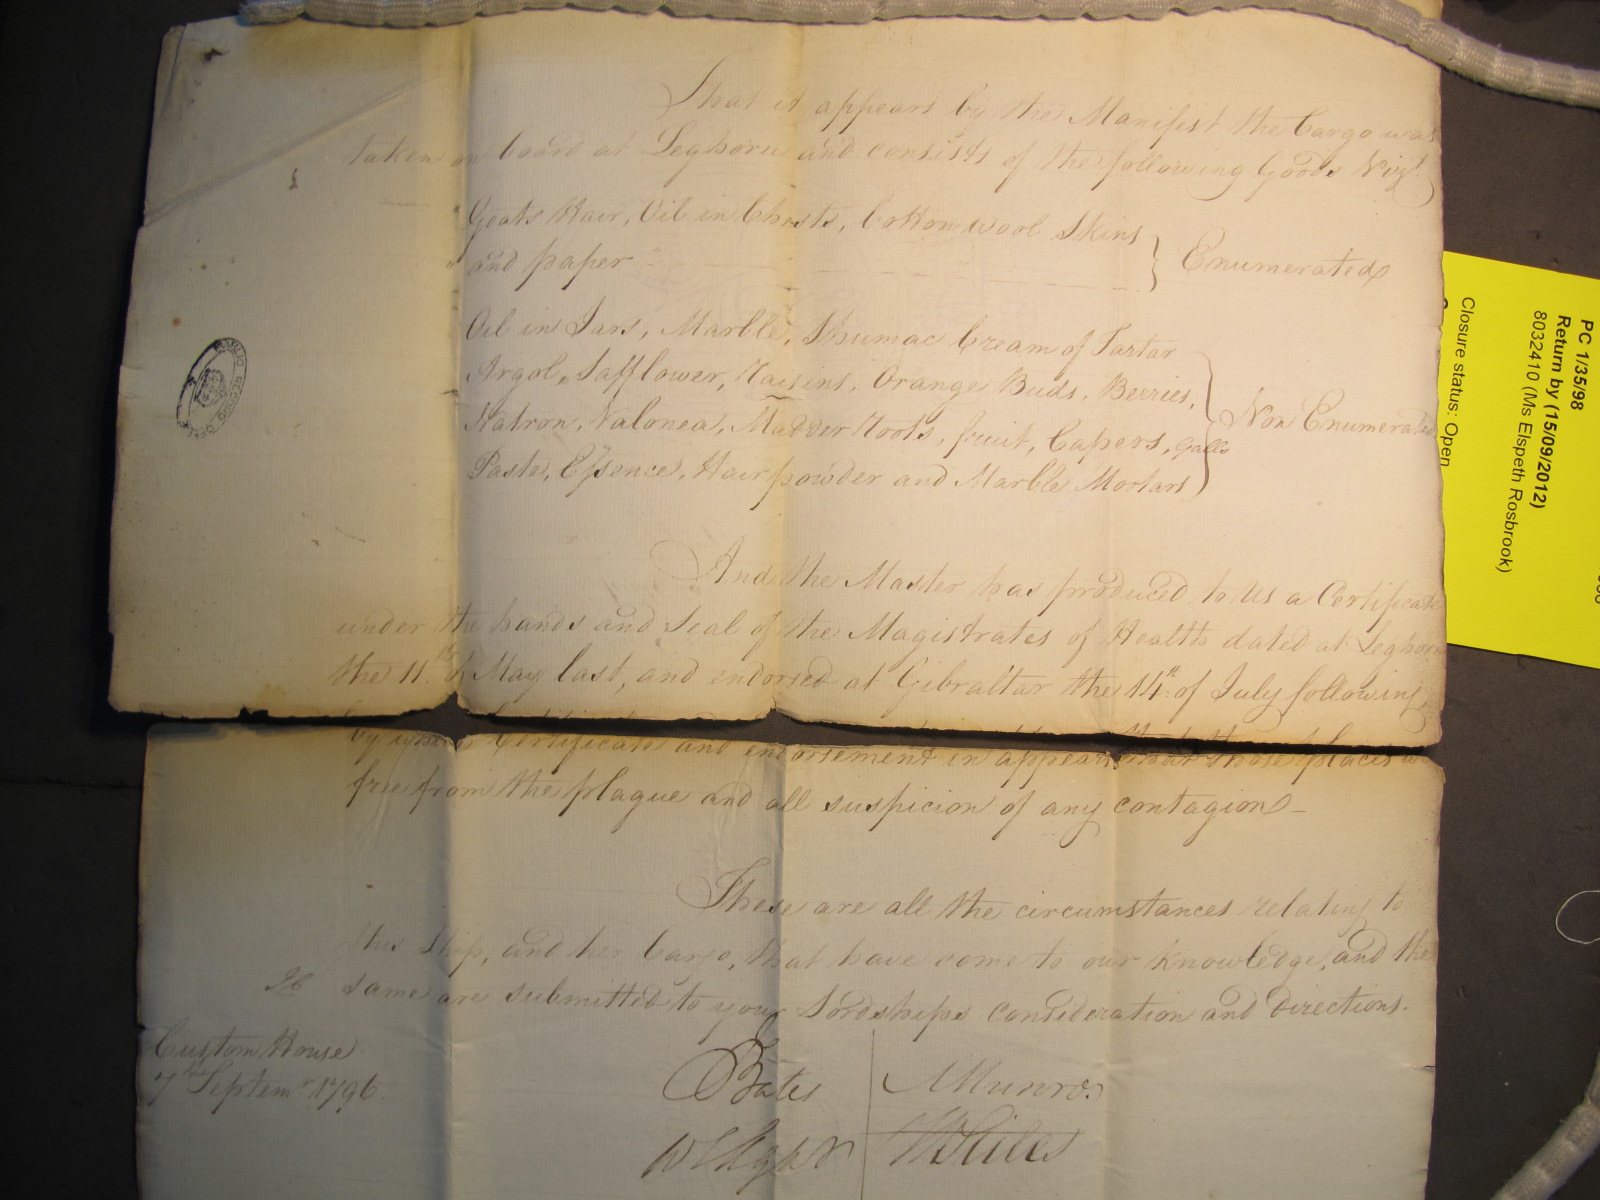 That it appears by the Manifest the Cargo was
taken on board at Leghorn and consists of the following Goods Vizt
Goats Hair, Oil in Chests, Cotton wool Skins
and paper
Enumerated
Oil in Jars, Marble, Shumac Cream of Tartar
Argol, Safflower, Raisins, Orange Buds, Berries,
Natron, Valonea, Madder Roots, fruit, Capers, Galls
Paste, Essence, Hair powder and Marble Mortars
Non Enumerated
And the Master has produced to us a Certificate
under the hands and Seal of the Magistrates of Health dated at Leghorn
the 11th of May last, and endorsed at Gibraltar the 14th of July following
by which Certificate and endorsement it appears that those places
free from the plague and all suspicion of any contagion -
These are all the circumstances relating to
this Ship, and her Cargo, that have come to our knowledge, and the
same are submitted to your Lordships consideration and directions.
Custom House
7th Septemr 1796.
Bates
Munro.
PUBLIC RECORD OFFICE
PC 1/35/98
Return by (15/09/2012)
8032410 (Ms Elspeth Rosbrook)
Closure status: Open